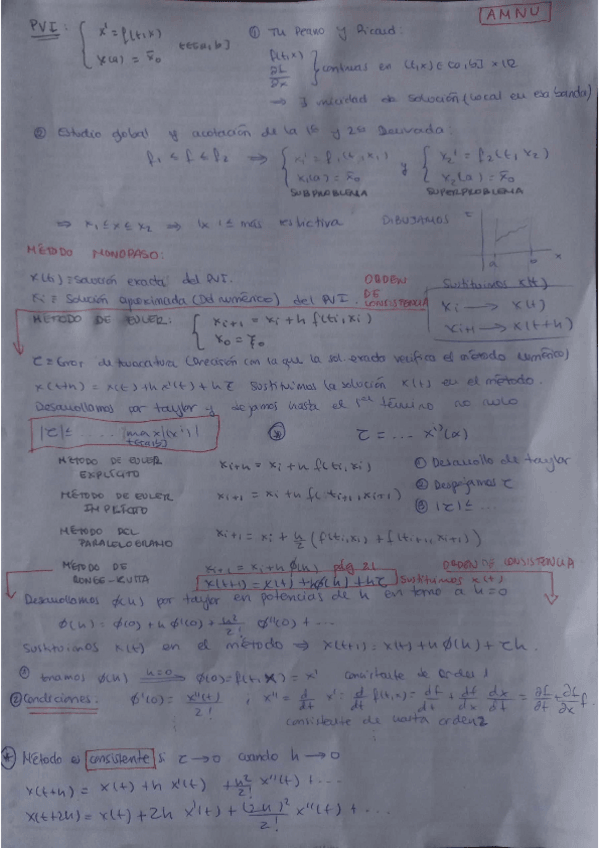 AMNU
PVI: { x' = f(t,x) x(a) = x̄₀ t∈[a,b]
① Tu Peano y Picard:
f(t,x) ∂f/∂x } continuas en (t,x) ∈ [a,b] × ℝ
→ ∃ unicidad de solución (local en esa banda)
② Estudio global y acotación de la 1ª y 2ª Derivada:
f₁ ≤ f ≤ f₂ ⟹ { x₁' = f₁(t,x₁) x₁(a) = x̄₀ y { x₂' = f₂(t,x₂) x₂(a) = x̄₀
SUBPROBLEMA SUPERPROBLEMA
⟹ x₁ ≤ x ≤ x₂ ⟹ |x| ≤ más restrictiva DIBUJAMOS
a b x
MÉTODO MONOPASO:
x(tᵢ) = solución exacta del PVI.
xᵢ = solución aproximada (Del numérico) del PVI.
ORDEN DE CONSISTENCIA
Sustituimos x(t)
xᵢ → x(t)
xᵢ₊₁ → x(t+h)
MÉTODO DE EULER: { xᵢ₊₁ = xᵢ + h f(tᵢ,xᵢ) x₀ = x̄₀
τ = Error de truncatura (Precisión con la que la sol. exacta verifica el método numérico)
x(t+h) = x(t) + h x'(t) + h τ Sustituimos la solución x(t) en el método.
Desarrollamos por taylor y dejamos hasta el 1er término no nulo
|τ| ≤ ... max |x'| t∈[a,b]
⊛ τ = ... x''(α)
MÉTODO DE EULER EXPLÍCITO xᵢ₊₁ = xᵢ + h f(tᵢ,xᵢ)
① Desarrollo de taylor
MÉTODO DE EULER IMPLÍCITO xᵢ₊₁ = xᵢ + h f(tᵢ₊₁,xᵢ₊₁)
② Despejamos τ
③ |τ| ≤ ...
MÉTODO DEL PARALELOGRAMO xᵢ₊₁ = xᵢ + h/2 (f(tᵢ,xᵢ) + f(tᵢ₊₁,xᵢ₊₁))
MÉTODO DE RONGE-KUTTA xᵢ₊₁ = xᵢ + h ϕ(h) pág 21 ORDEN DE CONSISTENCIA
x(t+1) = x(t) + hϕ(h) + hτ Sustituimos x(t)
Desarrollamos ϕ(h) por taylor en potencias de h en torno a h=0
ϕ(h) = ϕ(0) + h ϕ'(0) + h²/2! ϕ''(0) + ...
Sustituimos x(t) en el método ⟹ x(t+1) = x(t) + h ϕ(h) + τh.
① tenemos ϕ(h) h=0 ⟹ ϕ(0) = f(t,x) = x' consistente de orden 1
② Condiciones: ϕ'(0) = x''(t)/2! , x'' = d/dt x' = d/dt f(t,x) = df/dt + df/dx dx/dt = ∂f/∂t + ∂f/∂x f.
consistente de hasta orden 2
⊛ Método es consistente si τ → 0 cuando h → 0
x(t+h) = x(t) + h x'(t) + h²/2! x''(t) + ...
x(t+2h) = x(t) + 2h x'(t) + (2h)²/2! x''(t) + ...